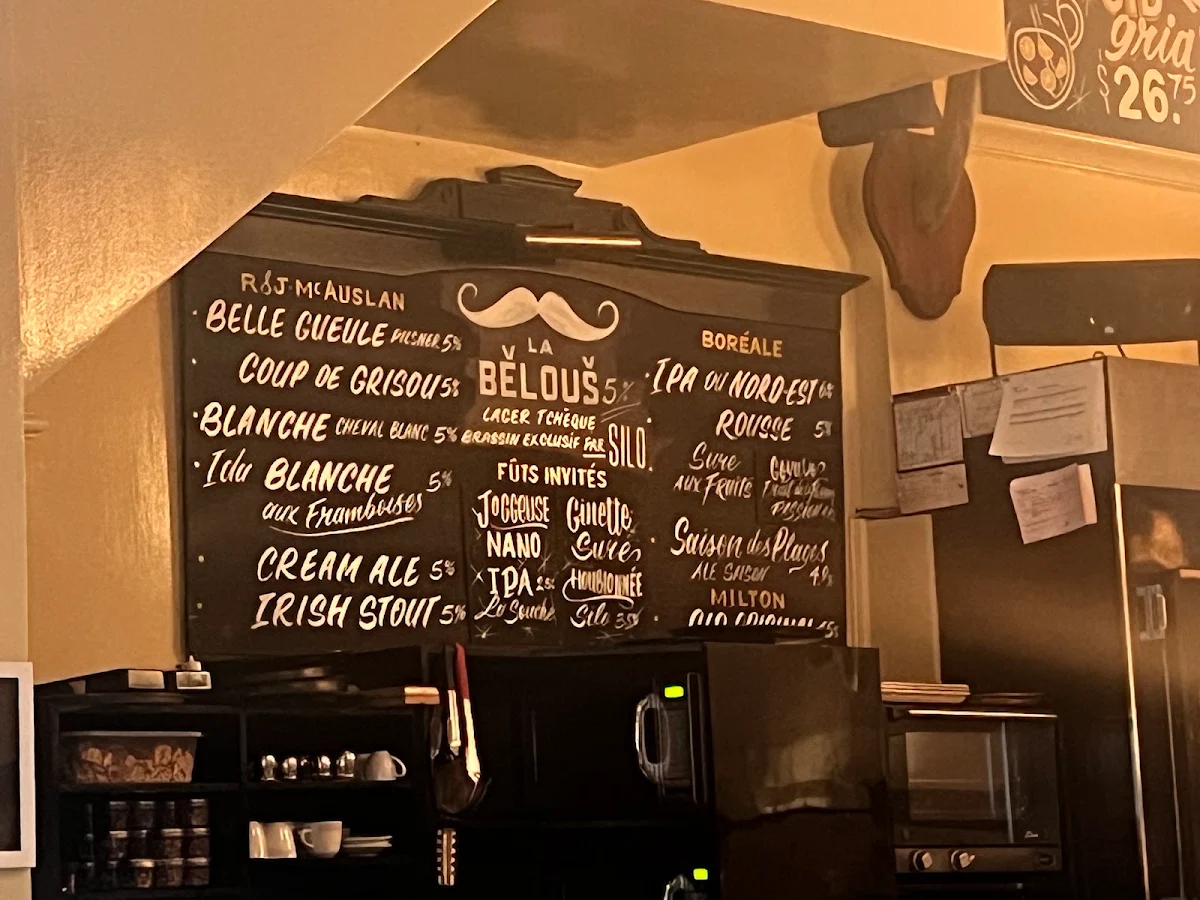 R&J McAUSLAN
BELLE GUEULE PILSNER 5%
COUP DE GRISOU 5%
BLANCHE CHEVAL BLANC 5%
BLANCHE 5%
aux Framboises
CREAM ALE 5%
IRISH STOUT 5%
LA
BĚLOUŠ 5%
LAGER TCHÈQUE
BRASSIN EXCLUSIF PAR SILO.
FÛTS INVITÉS
JOGGEUSE
NANO
IPA
La Souche
Ginette
Sure
HOUBLONNÉE
Silo
BORÉALE
IPA DU NORD-EST
ROUSSE 5%
Sure
AUX FRUITS
Saison des Plages
ALE SAISON
MILTON
gria
$26.75